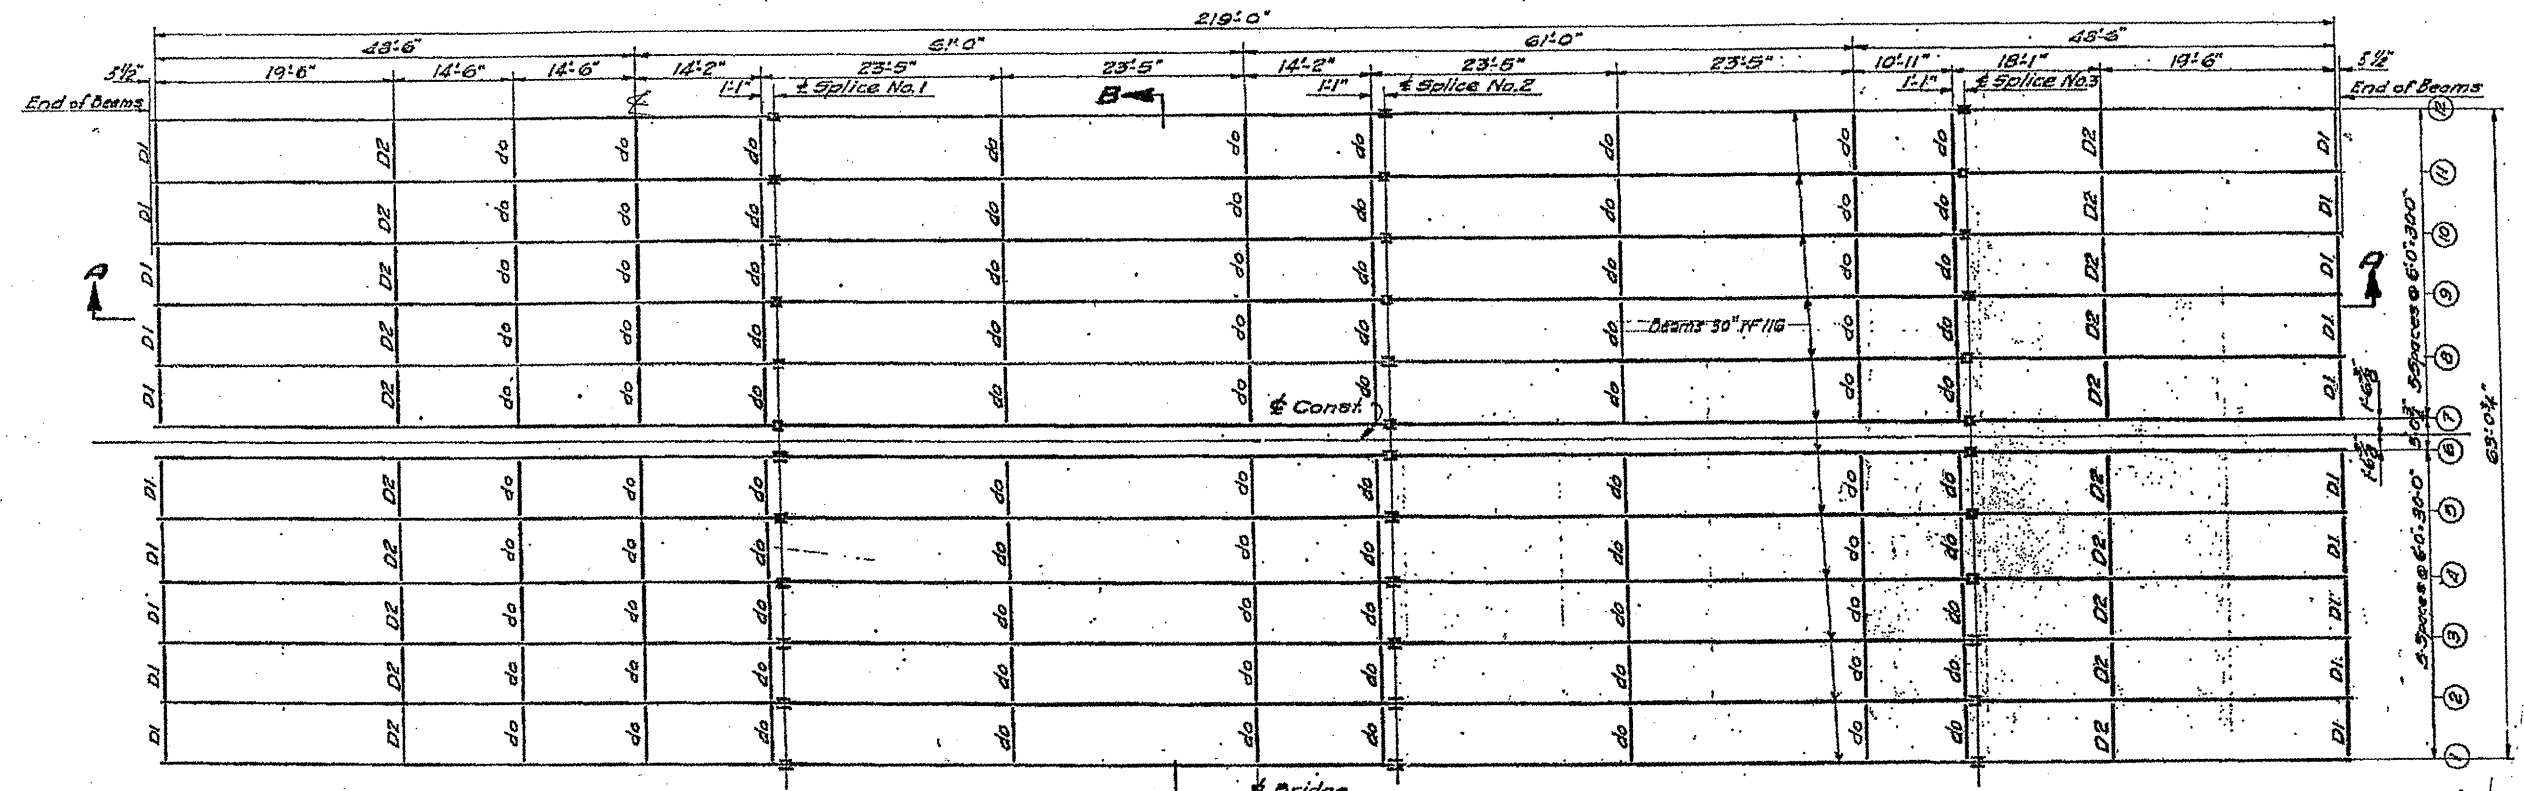 219'-0"
48'-6" 61'-0" 61'-0" 48'-6"
5½" 19'-6" 14'-6" 14'-6" 14'-2" 23'-5" 23'-5" 14'-2" 23'-5" 23'-5" 10'-11" 18'-1" 19'-6" 5½"
1'-1" ℄ Splice No.1 1'-1" ℄ Splice No.2 1'-1" ℄ Splice No.3
End of Beams B End of Beams
℄
12
D1 D2 do do do do do do do do do D2 D1
11
D1 D2 do do do do do do do do do D2 D1
10
A D1 D2 do do do do do do do do do D2 D1 A
9
D1 D2 do do do do do do do Beams 30" WF 116 do do D2 D1
8
D1 D2 do do do do do do do do do D2 D1
℄ Const.
7
6
D1 D2 do do do do do do do do do D2 D1
5
D1 D2 do do do do do do do do do D2 D1
4
D1 D2 do do do do do do do do do D2 D1
3
D1 D2 do do do do do do do do do D2 D1
2
D1 D2 do do do do do do do do do D2 D1
1
5 Spaces @ 6'-0"=30'-0"
5 Spaces @ 6'-0"=30'-0"
63'-0¾"
℄ Bridge